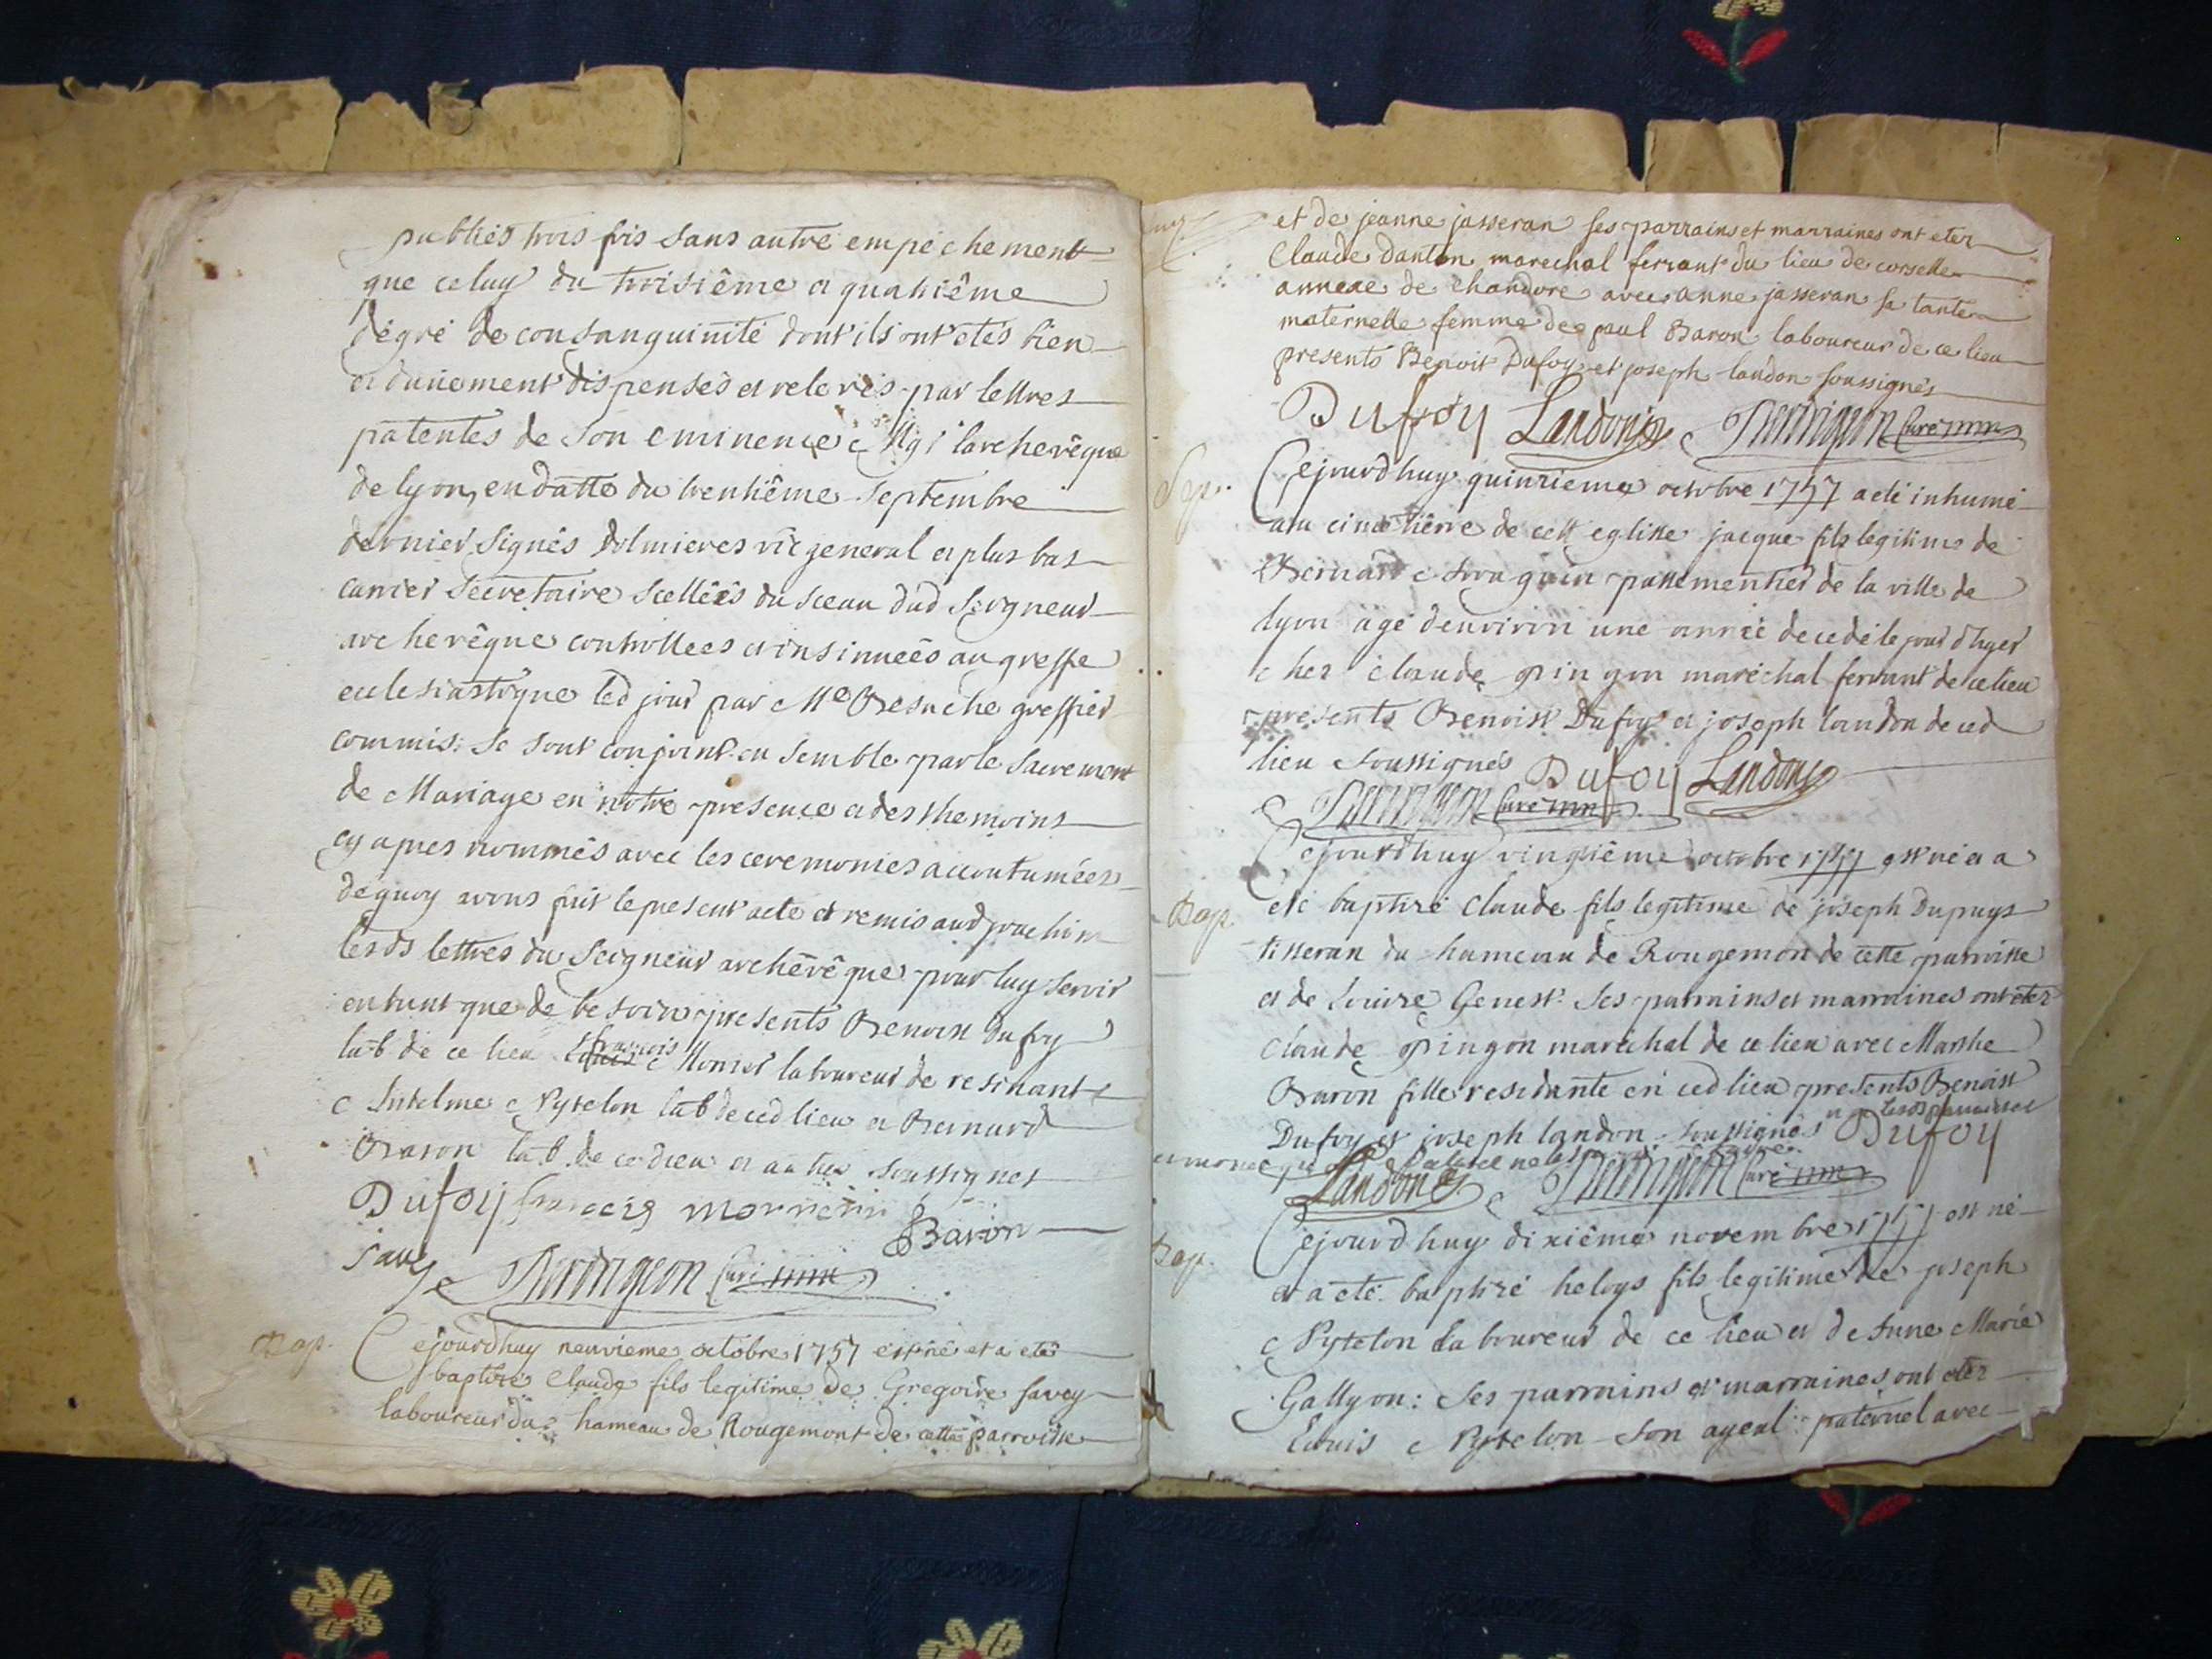 publiés trois fois sans autre empêchement
que celuy du troisiême et quatriême
dégré de consanguinité dont ils ont etés bien
et duëment dispensés et relevés par lettres
patentes de son eminence Mgr l'archevêque
de lyon, en datte du trentiême septembre
dernier signés vic general et plus bas
secretaire scelléés du sceau dud seigneur
archevêque controllees et insinuéés au greffe
eclesiastique led jour par Me Besuche greffier
commis; se sont conjoint ensemble par le sacrement
de Mariage en notre presence et des themoins
cy apres nommés avec les ceremonies accoutumées
dequoy avons fait le present acte et remis aud joachim
lesds lettres du seigneur archêvêque pour luy servir
entant que de besoin presents Benoist Dufoy
lab de ce lieu françois laboureur de
Antelme Pytelon lab de ced lieu et Bernard
Baron lab de ce lieu et autres soussignes
Dufoy francois
Baron
Savy Curé
Bap. Cejourdhuy neuvieme octobre 1757 est né et a eté
baptizé Claude fils legitime de Gregoire savey
laboureur du hameau de Rougemont de cette parroisse
et de jeanne jasseran ses parrains et marraines ont etez
Claude Danton marechal ferrant du lieu de
annexe de avec anne jasseran sa tante
maternelle femme de paul Baron laboureur de ce lieu
presents Benoit Dufoy et joseph landon soussignés
Dufoy Landon Curé
Sep. Cejourdhuy quinzieme octobre 1757 a eté inhumé
au cimetiêrre de cett eglisse jacque fils legitime de
Bernard passementier de la ville de
lyon agé denviron une anneé decedé le jour d'hyer
chez claude pingon maréchal ferrant de ce lieu
presents Benoist Dufoy et joseph landon de ced
lieu soussignés Dufoy Landon
Curé
Cejourdhuy vingtiême octobre 1757 est né et a
Bap. eté baptizé Claude fils legitime de joseph Dupuys
tisseran du hameau de Rougemon de cette parroisse
et de Genest. Ses parrains et marraines ont etez
Claude pingon marechal de ce lieu avec Marthe
Baron fille residante en ced lieu presents Benoist
Dufoy et joseph landon soussignés Dufoy
Landon Curé
Bap. Cejourdhuy dixiême novembre 1757 est né
et a eté baptizé heloys fils legitime de joseph
Pytelon Laboureur de ce lieu et de Anne Marie
Gallyon: Ses parrains et marraines ont etez
Louis Pytelon son ayeul paternel avec